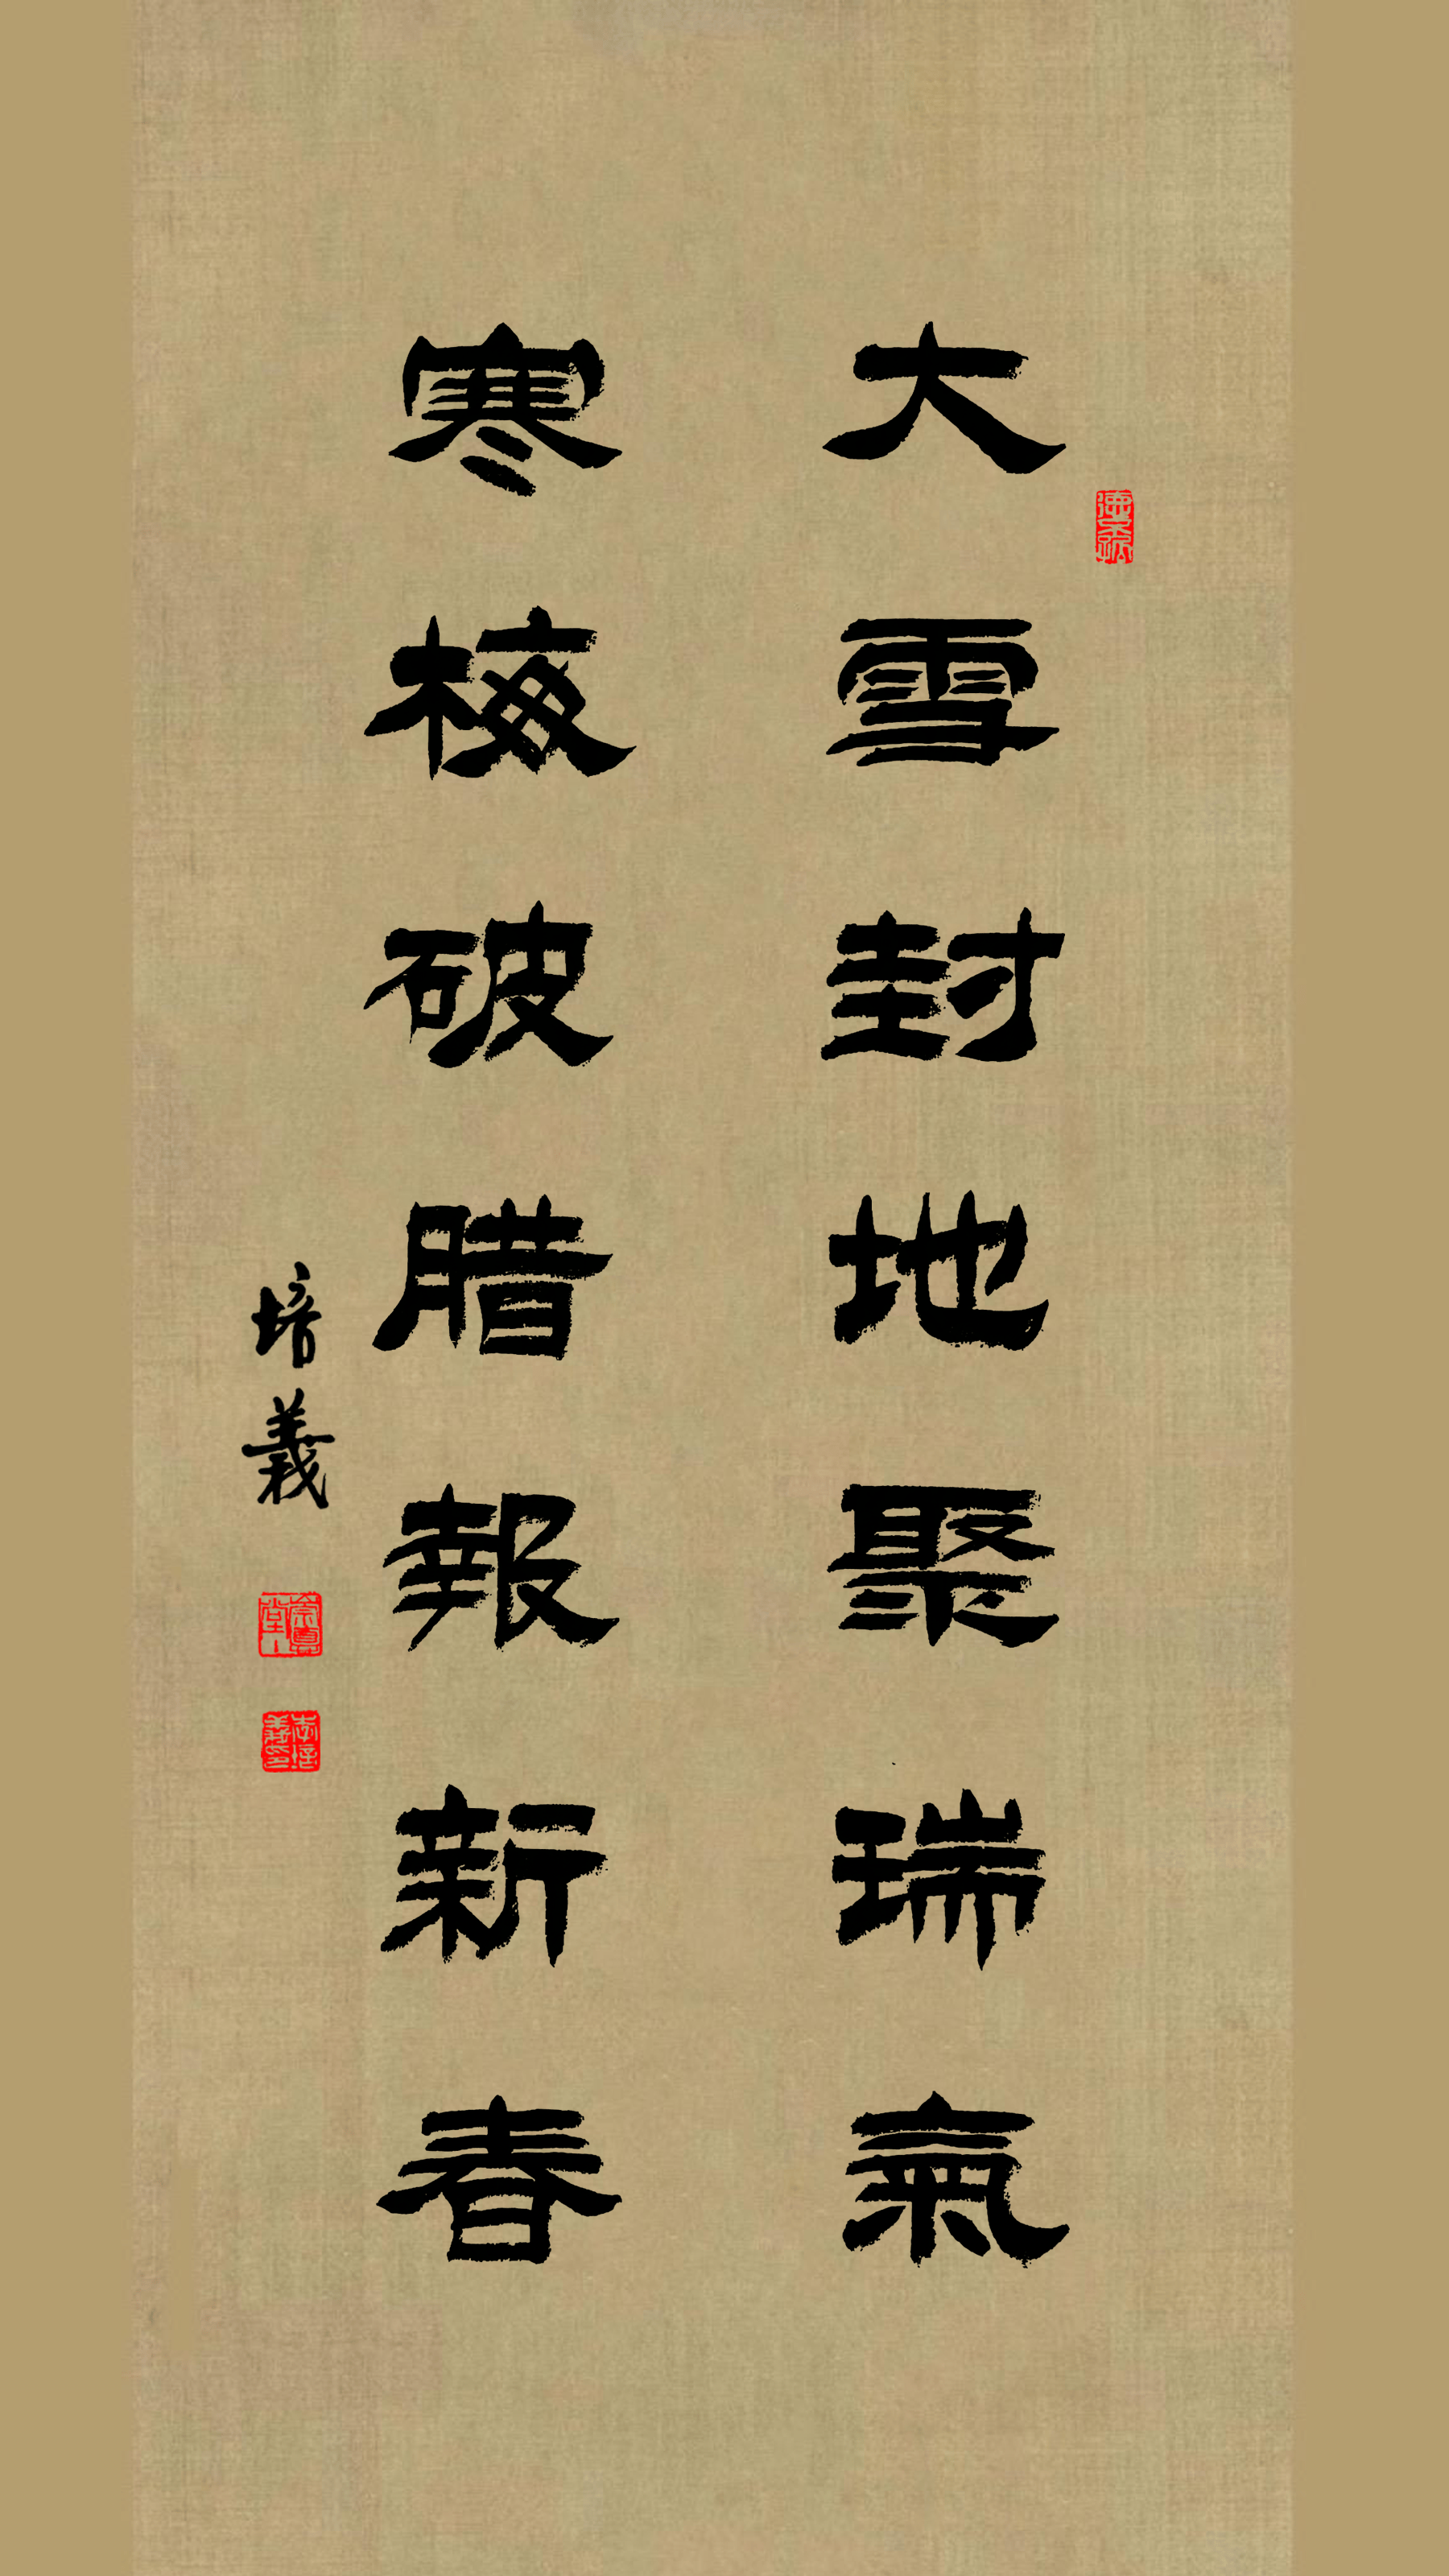 大雪封地聚瑞氣
寒梅破腊報新春
培義